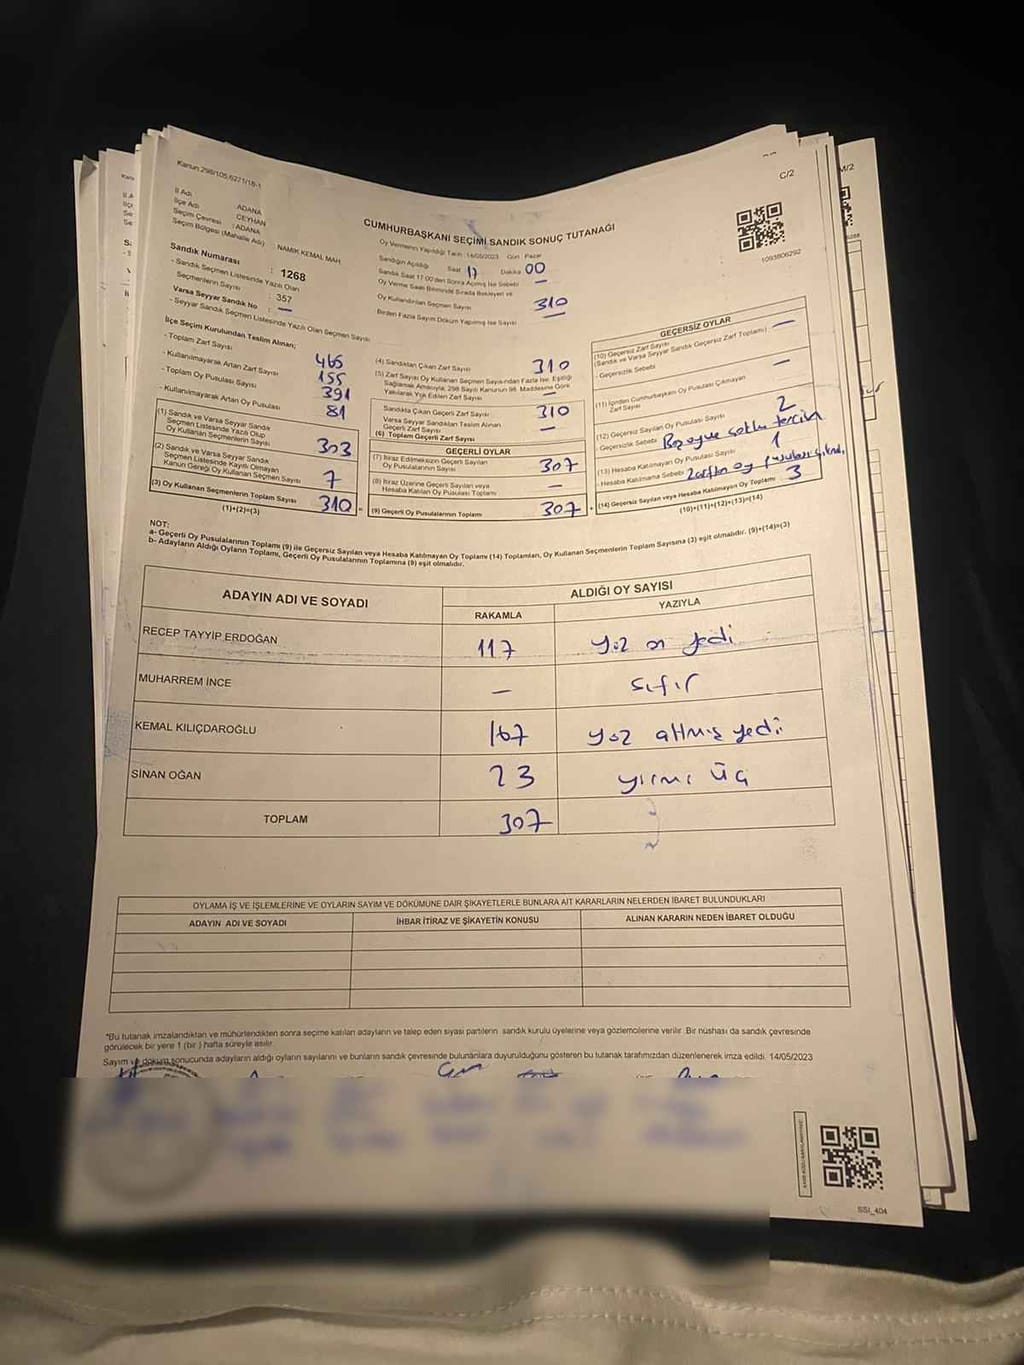 Kanun:298/105,6271/18-1
C/2
İl Adı : ADANA
İlçe Adı : CEYHAN
Seçim Çevresi : ADANA
Seçim Bölgesi (Mahalle Adı) : NAMIK KEMAL MAH
Sandık Numarası : 1268
- Sandık Seçmen Listesinde Yazılı Olan
Seçmenlerin Sayısı : 357
Varsa Seyyar Sandık No : —
- Seyyar Sandık Seçmen Listesinde Yazılı Olan Seçmen Sayısı
CUMHURBAŞKANI SEÇİMİ SANDIK SONUÇ TUTANAĞI
Oy Vermenin Yapıldığı Tarih : 14/05/2023 Gün : Pazar
Sandığın Açıldığı Saat 17 Dakika 00
Sandık Saat 17:00'den Sonra Açılmış İse Sebebi —
Oy Verme Saati Bitiminde Sırada Bekleyen ve
Oy Kullandırılan Seçmen Sayısı 310
Birden Fazla Sayım Döküm Yapılmış İse Sayısı —
1093806292
İlçe Seçim Kurulundan Teslim Alınan;
- Toplam Zarf Sayısı 465
- Kullanılmayarak Artan Zarf Sayısı 155
- Toplam Oy Pusulası Sayısı 391
- Kullanılmayarak Artan Oy Pusulası 81
(1) Sandık ve Varsa Seyyar Sandık
Seçmen Listesinde Yazılı Olup
Oy Kullanan Seçmenlerin Sayısı 303
(2) Sandık ve Varsa Seyyar Sandık
Seçmen Listesinde Kayıtlı Olmayan
Kanun Gereği Oy Kullanan Seçmen Sayısı 7
(3) Oy Kullanan Seçmenlerin Toplam Sayısı 310
(1)+(2)=(3)
(4) Sandıktan Çıkan Zarf Sayısı 310
(5) Zarf Sayısı Oy Kullanan Seçmen Sayısından Fazla İse, Eşitliği
Sağlamak Amacıyla, 298 Sayılı Kanunun 98. Maddesine Göre
Yakılarak Yok Edilen Zarf Sayısı —
Sandıkta Çıkan Geçerli Zarf Sayısı 310
Varsa Seyyar Sandıktan Teslim Alınan
Geçerli Zarf Sayısı —
(6) Toplam Geçerli Zarf Sayısı
GEÇERLİ OYLAR
(7) İtiraz Edilmeksizin Geçerli Sayılan
Oy Pusulasının Sayısı 307
(8) İtiraz Üzerine Geçerli Sayılan veya
Hesaba Katılan Oy Pusulası Toplamı —
(9) Geçerli Oy Pusulalarının Toplamı 307
GEÇERSİZ OYLAR
(10) Geçersiz Zarf Sayısı
(Sandık ve Varsa Seyyar Sandık Geçersiz Zarf Toplamı) : —
- Geçersizlik Sebebi
(11) İçinden Cumhurbaşkanı Oy Pusulası Çıkmayan
Zarf Sayısı —
(12) Geçersiz Sayılan Oy Pusulası Sayısı 2
- Geçersizlik Sebebi
(13) Hesaba Katılmayan Oy Pusulası Sayısı 1
- Hesaba Katılmama Sebebi Zarftan oy pusulası çıkmadı.
(14) Geçersiz Sayılan veya Hesaba Katılmayan Oy Toplamı 3
(10)+(11)+(12)+(13)=(14)
NOT:
a- Geçerli Oy Pusulalarının Toplamı (9) ile Geçersiz Sayılan veya Hesaba Katılmayan Oy Toplamı (14) Toplamları, Oy Kullanan Seçmenlerin Toplam Sayısına (3) eşit olmalıdır. (9)+(14)=(3)
b- Adayların Aldığı Oyların Toplamı, Geçerli Oy Pusulalarının Toplamına (9) eşit olmalıdır.
ADAYIN ADI VE SOYADI ALDIĞI OY SAYISI
RAKAMLA YAZIYLA
RECEP TAYYİP ERDOĞAN 117 yüz on yedi
MUHARREM İNCE — sıfır
KEMAL KILIÇDAROĞLU 167 yüz altmış yedi
SİNAN OĞAN 23 yirmi üç
TOPLAM 307
OYLAMA İŞ VE İŞLEMLERİNE VE OYLARIN SAYIM VE DÖKÜMÜNE DAİR ŞİKAYETLERLE BUNLARA AİT KARARLARIN NELERDEN İBARET BULUNDUKLARI
ADAYIN ADI VE SOYADI İHBAR İTİRAZ VE ŞİKAYETİN KONUSU ALINAN KARARIN NEDEN İBARET OLDUĞU
*Bu tutanak imzalandıktan ve mühürlendikten sonra seçime katılan adayların ve talep eden siyasi partilerin sandık kurulu üyelerine veya gözlemcilerine verilir. Bir nüshası da sandık çevresinde
görülecek bir yere 1 (bir) hafta süreyle asılır.
Sayım ve döküm sonucunda adayların aldığı oyların sayılarını ve bunların sandık çevresinde bulunanlara duyurulduğunu gösteren bu tutanak tarafımızdan düzenlenerek imza edildi. 14/05/2023
SSI_404